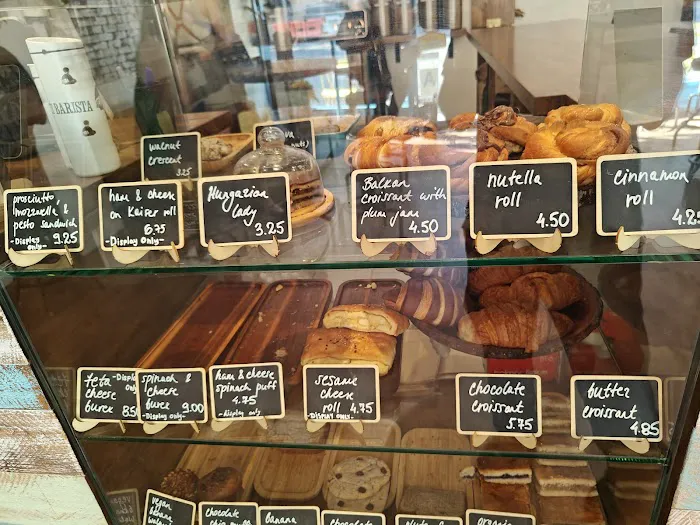 BARISTA
walnut
crecent
3.25
prosciutto,
mozzarella &
pesto sandwich
-Display only-
9.25
ham & cheese
on Kaiser roll
6.75
-Display only-
Hungarian
lady
3.25
Balkan
croissant with
plum jam
4.50
nutella
roll
4.50
cinnamon
roll
4.2
feta -Display
cheese only-
burek 8.50
spinach &
cheese
burek 9.00
-Display only-
ham & cheese
spinach puff
4.75
-Display only-
sesame
cheek
roll 4.75
-DISPLAY ONLY-
chocolate
croissant
5.75
butter
croissant
4.85
vegan
banana
walnut
chocolate
banana
chocolate